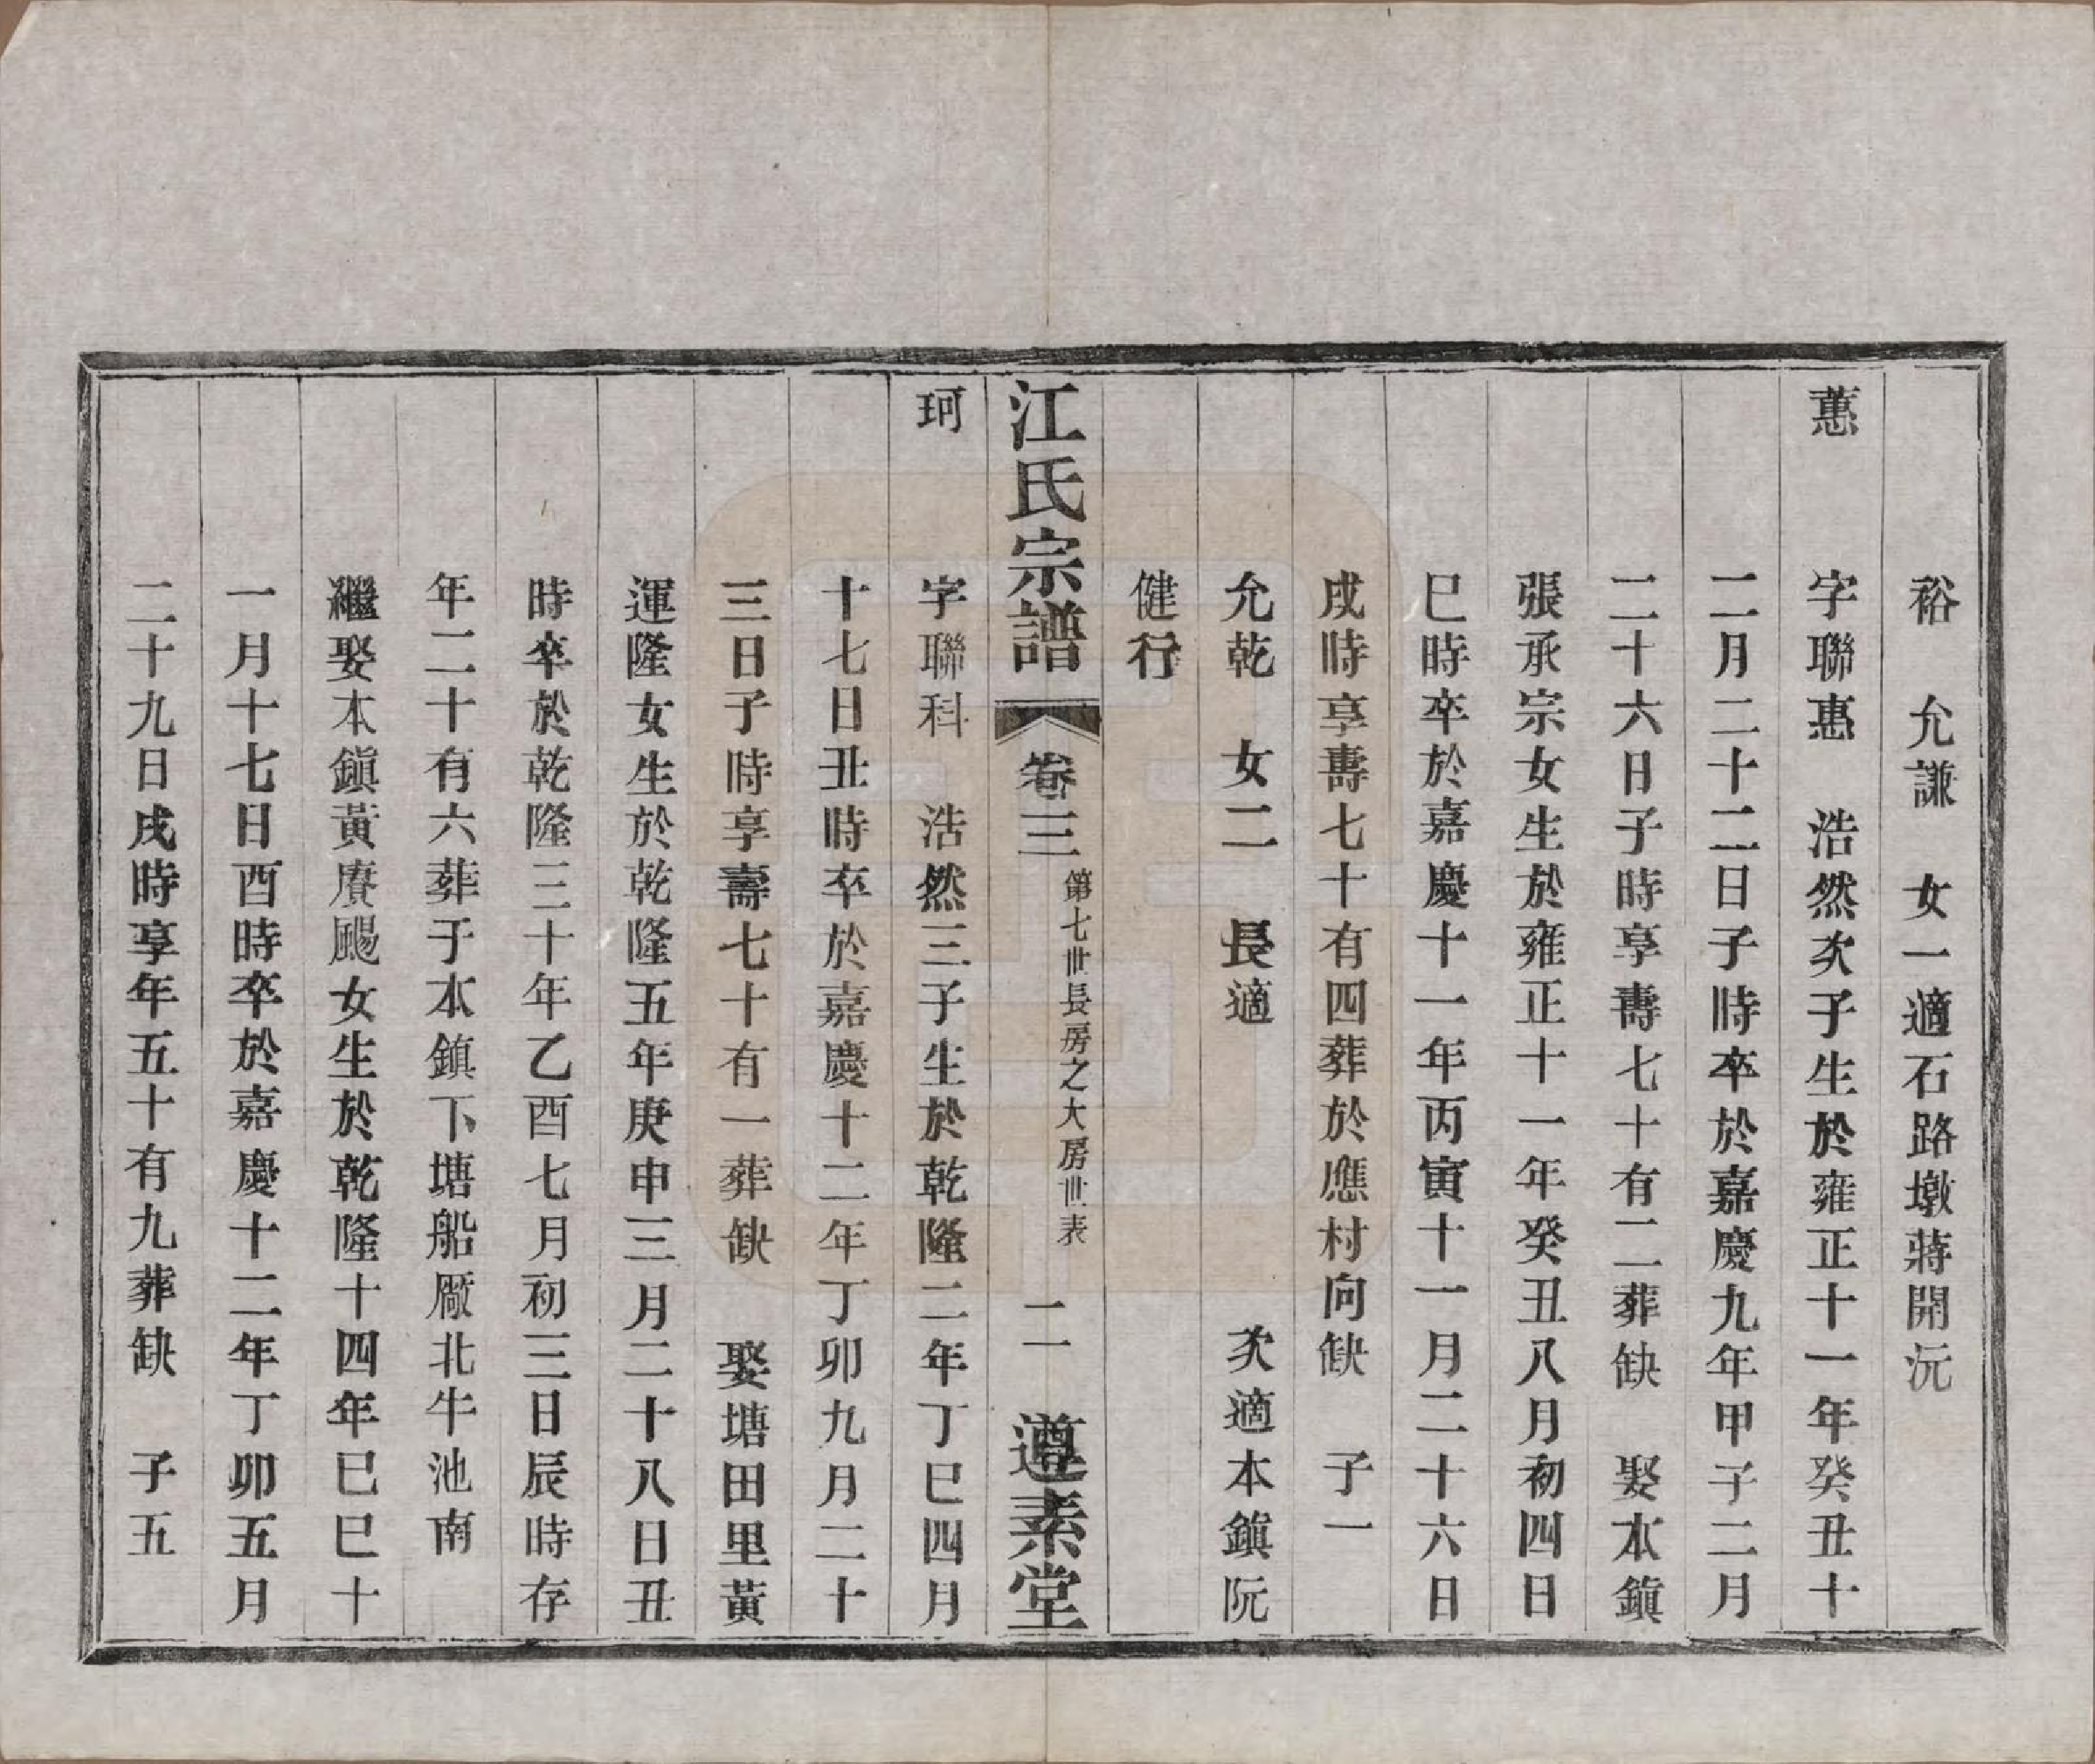 裕　允謙　女一適石路墩蔣開沅
蕙　字聯惠　浩然次子生於雍正十一年癸丑十
二月二十二日子時卒於嘉慶九年甲子二月
二十六日子時享壽七十有二葬缺　娶本鎮
張承宗女生於雍正十一年癸丑八月初四日
巳時卒於嘉慶十一年丙寅十一月二十六日
戌時享壽七十有四葬於應村向缺　子一
允乾　女二　長適　次適本鎮阮
健行
江氏宗譜　卷三　第七世長房之大房世表　二　遵素堂
珂　字聯科　浩然三子生於乾隆二年丁巳四月
十七日丑時卒於嘉慶十二年丁卯九月二十
三日子時享壽七十有一葬缺　娶塘田里黃
運隆女生於乾隆五年庚申三月二十八日丑
時卒於乾隆三十年乙酉七月初三日辰時存
年二十有六葬于本鎮下塘船厰北牛池南
繼娶本鎮黃賡颺女生於乾隆十四年巳巳十
一月十七日酉時卒於嘉慶十二年丁卯五月
二十九日戌時享年五十有九葬缺　子五